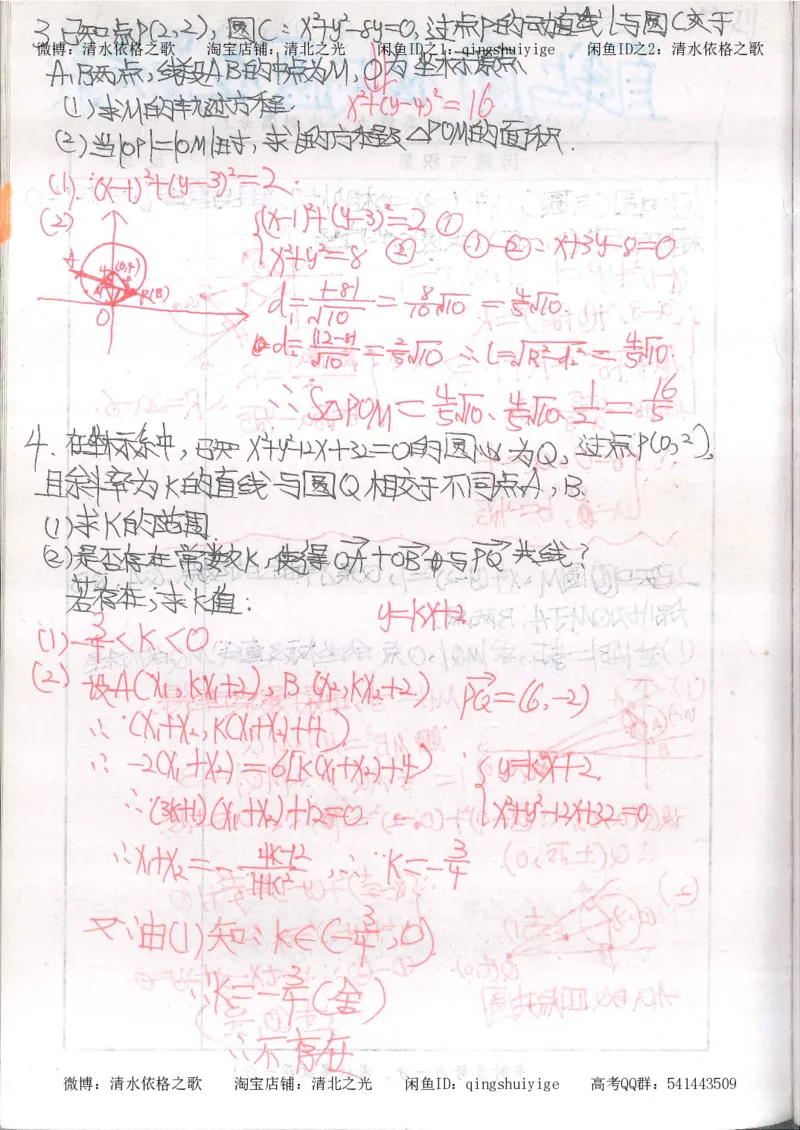 3.已知点P(2,2),圆C:x²+y²-8y=0,过点P的动直线l与圆C交于
微博:清水依格之歌 淘宝店铺:清北之光 闲鱼ID之1:qingshuiyige 闲鱼ID之2:清水依格之歌
A,B两点,线段AB的中点为M,O为坐标原点
(1)求M的轨迹方程. x²+(y-4)²=16
(2)当|OP|=|OM|时,求l的方程及△POM的面积.
(1):(x-1)²+(y-3)²=2.
(2) {(x-1)²+(y-3)²=2 ①
A (0,4) M P(B) O
x²+y²=8 ② ①-②: x+3y-8=0
d₁=|-8|/√10=8/10√10=4/5√10.
d₂=|12-8|/√10=2/5√10 ∴L=√R²-d₂²=4/5√10.
∴S△POM=4/5√10·4/5√10·1/2=16/5
4.在坐标系中,已知x²+y²-12x+32=0的圆心为Q,过点P(0,2),
且斜率为K的直线与圆Q相交于不同点A,B.
(1)求K的范围
(2)是否存在常数K,使得OA+OB与PQ共线?
若存在,求K值:
y=kx+2
(1)-3/4<K<0
(2)设A(x₁,kx₁+2),B(x₂,kx₂+2) PQ=(6,-2)
∴(x₁+x₂,k(x₁+x₂)+4)
∴-2(x₁+x₂)=6[k(x₁+x₂)+4] {y=kx+2
∴(3k+1)(x₁+x₂)+12=0 x²+y²-12x+32=0
∴x₁+x₂=-4k-12/1+k²,∴K=-3/4
又∵由(1)知:k∈(-3/4,0)
∴K=-3/4(舍)
∴不存在
微博:清水依格之歌 淘宝店铺:清北之光 闲鱼ID:qingshuiyige 高考QQ群:541443509